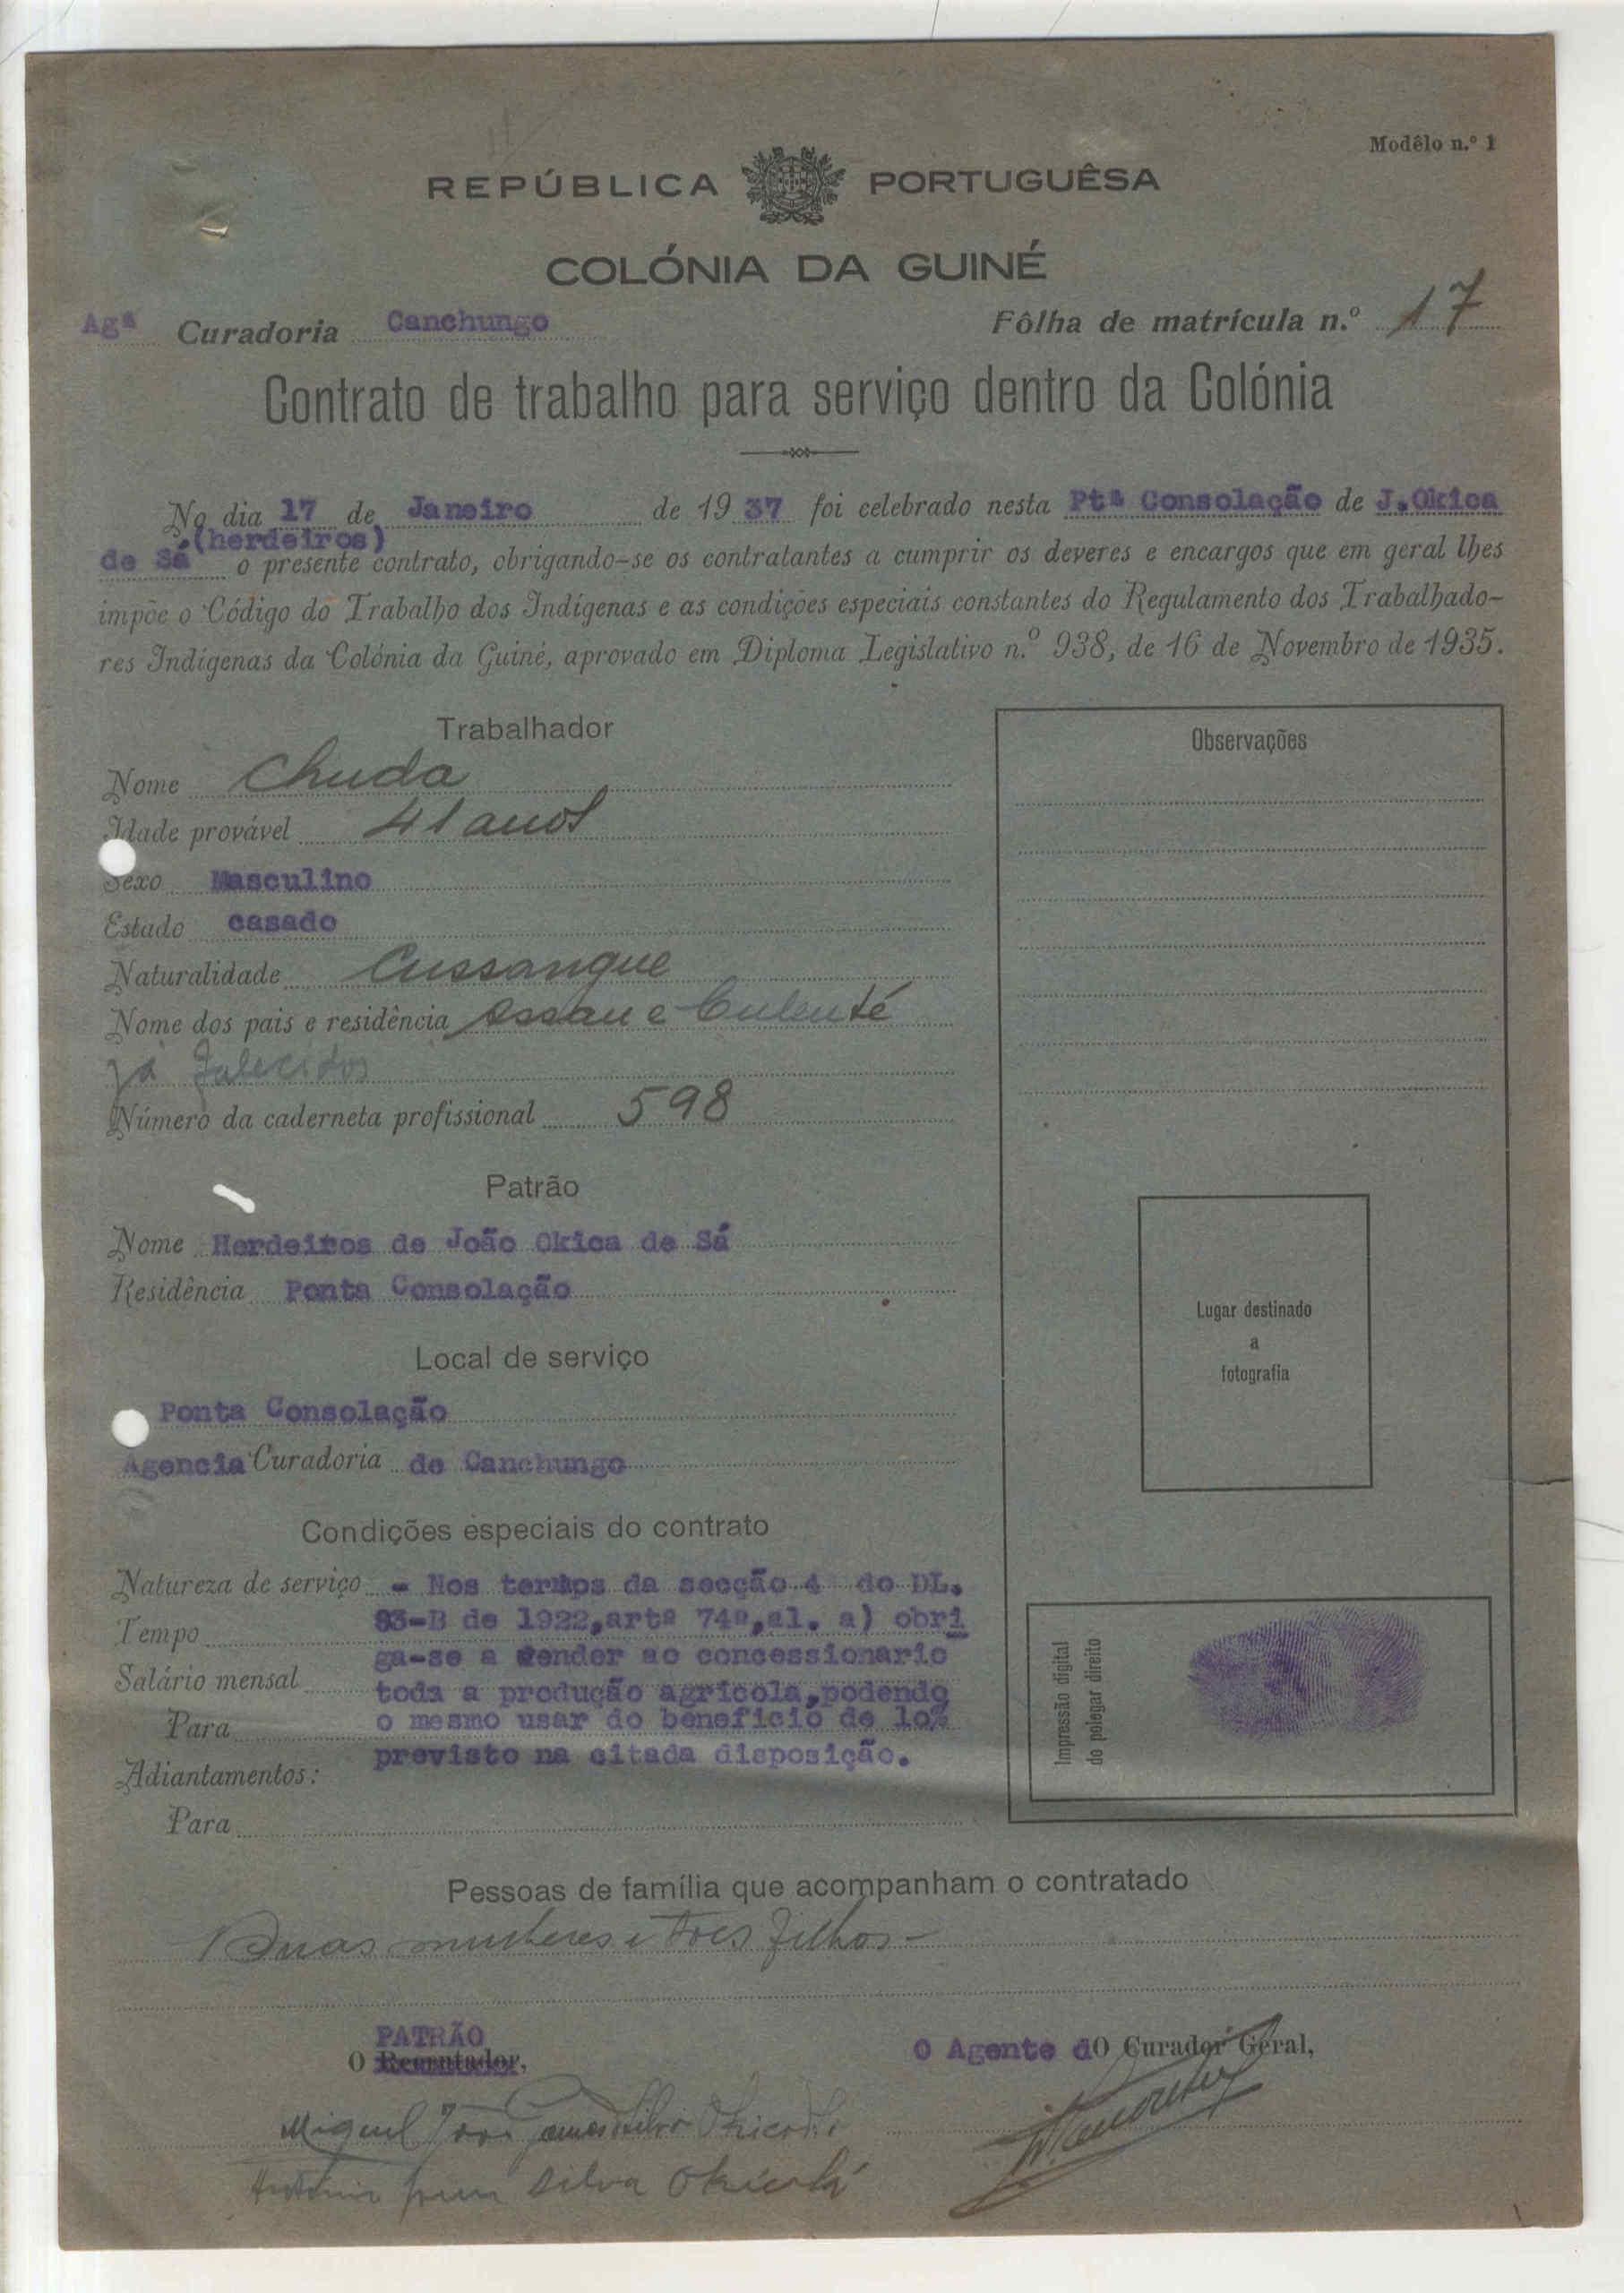 Modêlo n.º 1
REPÚBLICA PORTUGUÊSA
COLÓNIA DA GUINÉ
Agª Curadoria Canchungo Fôlha de matrícula n.º 17
Contrato de trabalho para serviço dentro da Colónia
No dia 17 de Janeiro de 1937 foi celebrado nesta Ptª Consolação de J.Okica
(herdeiros)
de Sá o presente contrato, obrigando-se os contratantes a cumprir os deveres e encargos que em geral lhes
impõe o Código do Trabalho dos Indígenas e as condições especiais constantes do Regulamento dos Trabalhado-
res Indígenas da Colónia da Guiné, aprovado em Diploma Legislativo n.º 938, de 16 de Novembro de 1935.
Trabalhador
Nome Chuda
Idade provável 41 anos
Sexo Masculino
Estado casado
Naturalidade Cussangue
Nome dos pais e residência Assau e Culenté
já falecidos
Número da caderneta profissional 598
Patrão
Nome Herdeiros de João Okica de Sá
Residência Ponta Consolação
Local de serviço
Ponta Consolação
Agencia Curadoria de Canchungo
Condições especiais do contrato
Natureza de serviço - Nos termos da secção 4 do DL.
Tempo 93-B de 1922,artº 74º,al. a) obri
ga-se a vender ao concessionario
Salário mensal toda a produção agrícola,podendo
Para o mesmo usar do beneficio de 10%
previsto na citada disposição.
Adiantamentos:
Para
Observações
Lugar destinado
a
fotografia
Impressão digital
do polegar direito
Pessoas de família que acompanham o contratado
Duas mulheres e tres filhos-
PATRÃO
O Recrutador,
O Agente dO Curador Geral,
Miguel
Silva